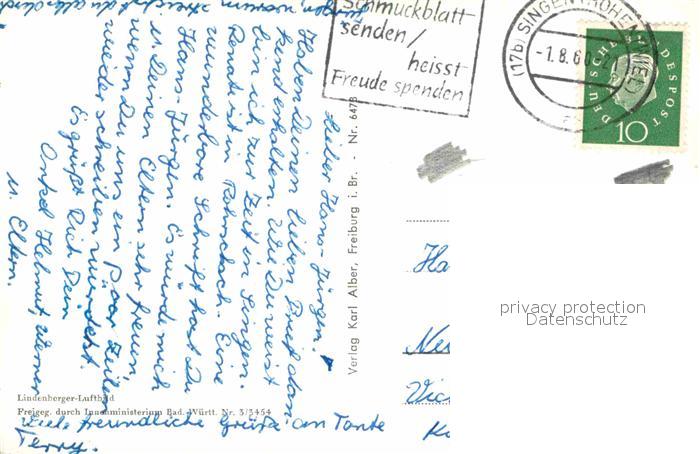 Schmuckblatt-
senden/
heisst
Freude spenden
(17b) SINGEN (HOHENTWIEL)
-1.8.60-21
DEUTSCHE BUNDESPOST
10
Lieber Hans-Jürgen!
Haben Deinen lieben Brief dan-
kend erhalten. Wie Du weist
bin ich zur Zeit in Singen.
Renat ist in Rohrschach. Eine
wunderbare Schrift hast Du
Hans-Jürgen. Es würde mich
u. Deinen Eltern sehr freuen,
wenn Du uns ein paar Zeilen
wieder schreiben würdest.
Es grüßt Dich Dein
Onkel Helmut, Werner
u. Eltern.
Viele freundliche Grüße an Tante
Terry.
Verlag Karl Alber, Freiburg i. Br. - Nr. 6478
Lindenberger-Luftbild
Freigeg. durch Innenministerium Bad. Württ. Nr. 3/3454
Ha
Vic
privacy protection
Datenschutz